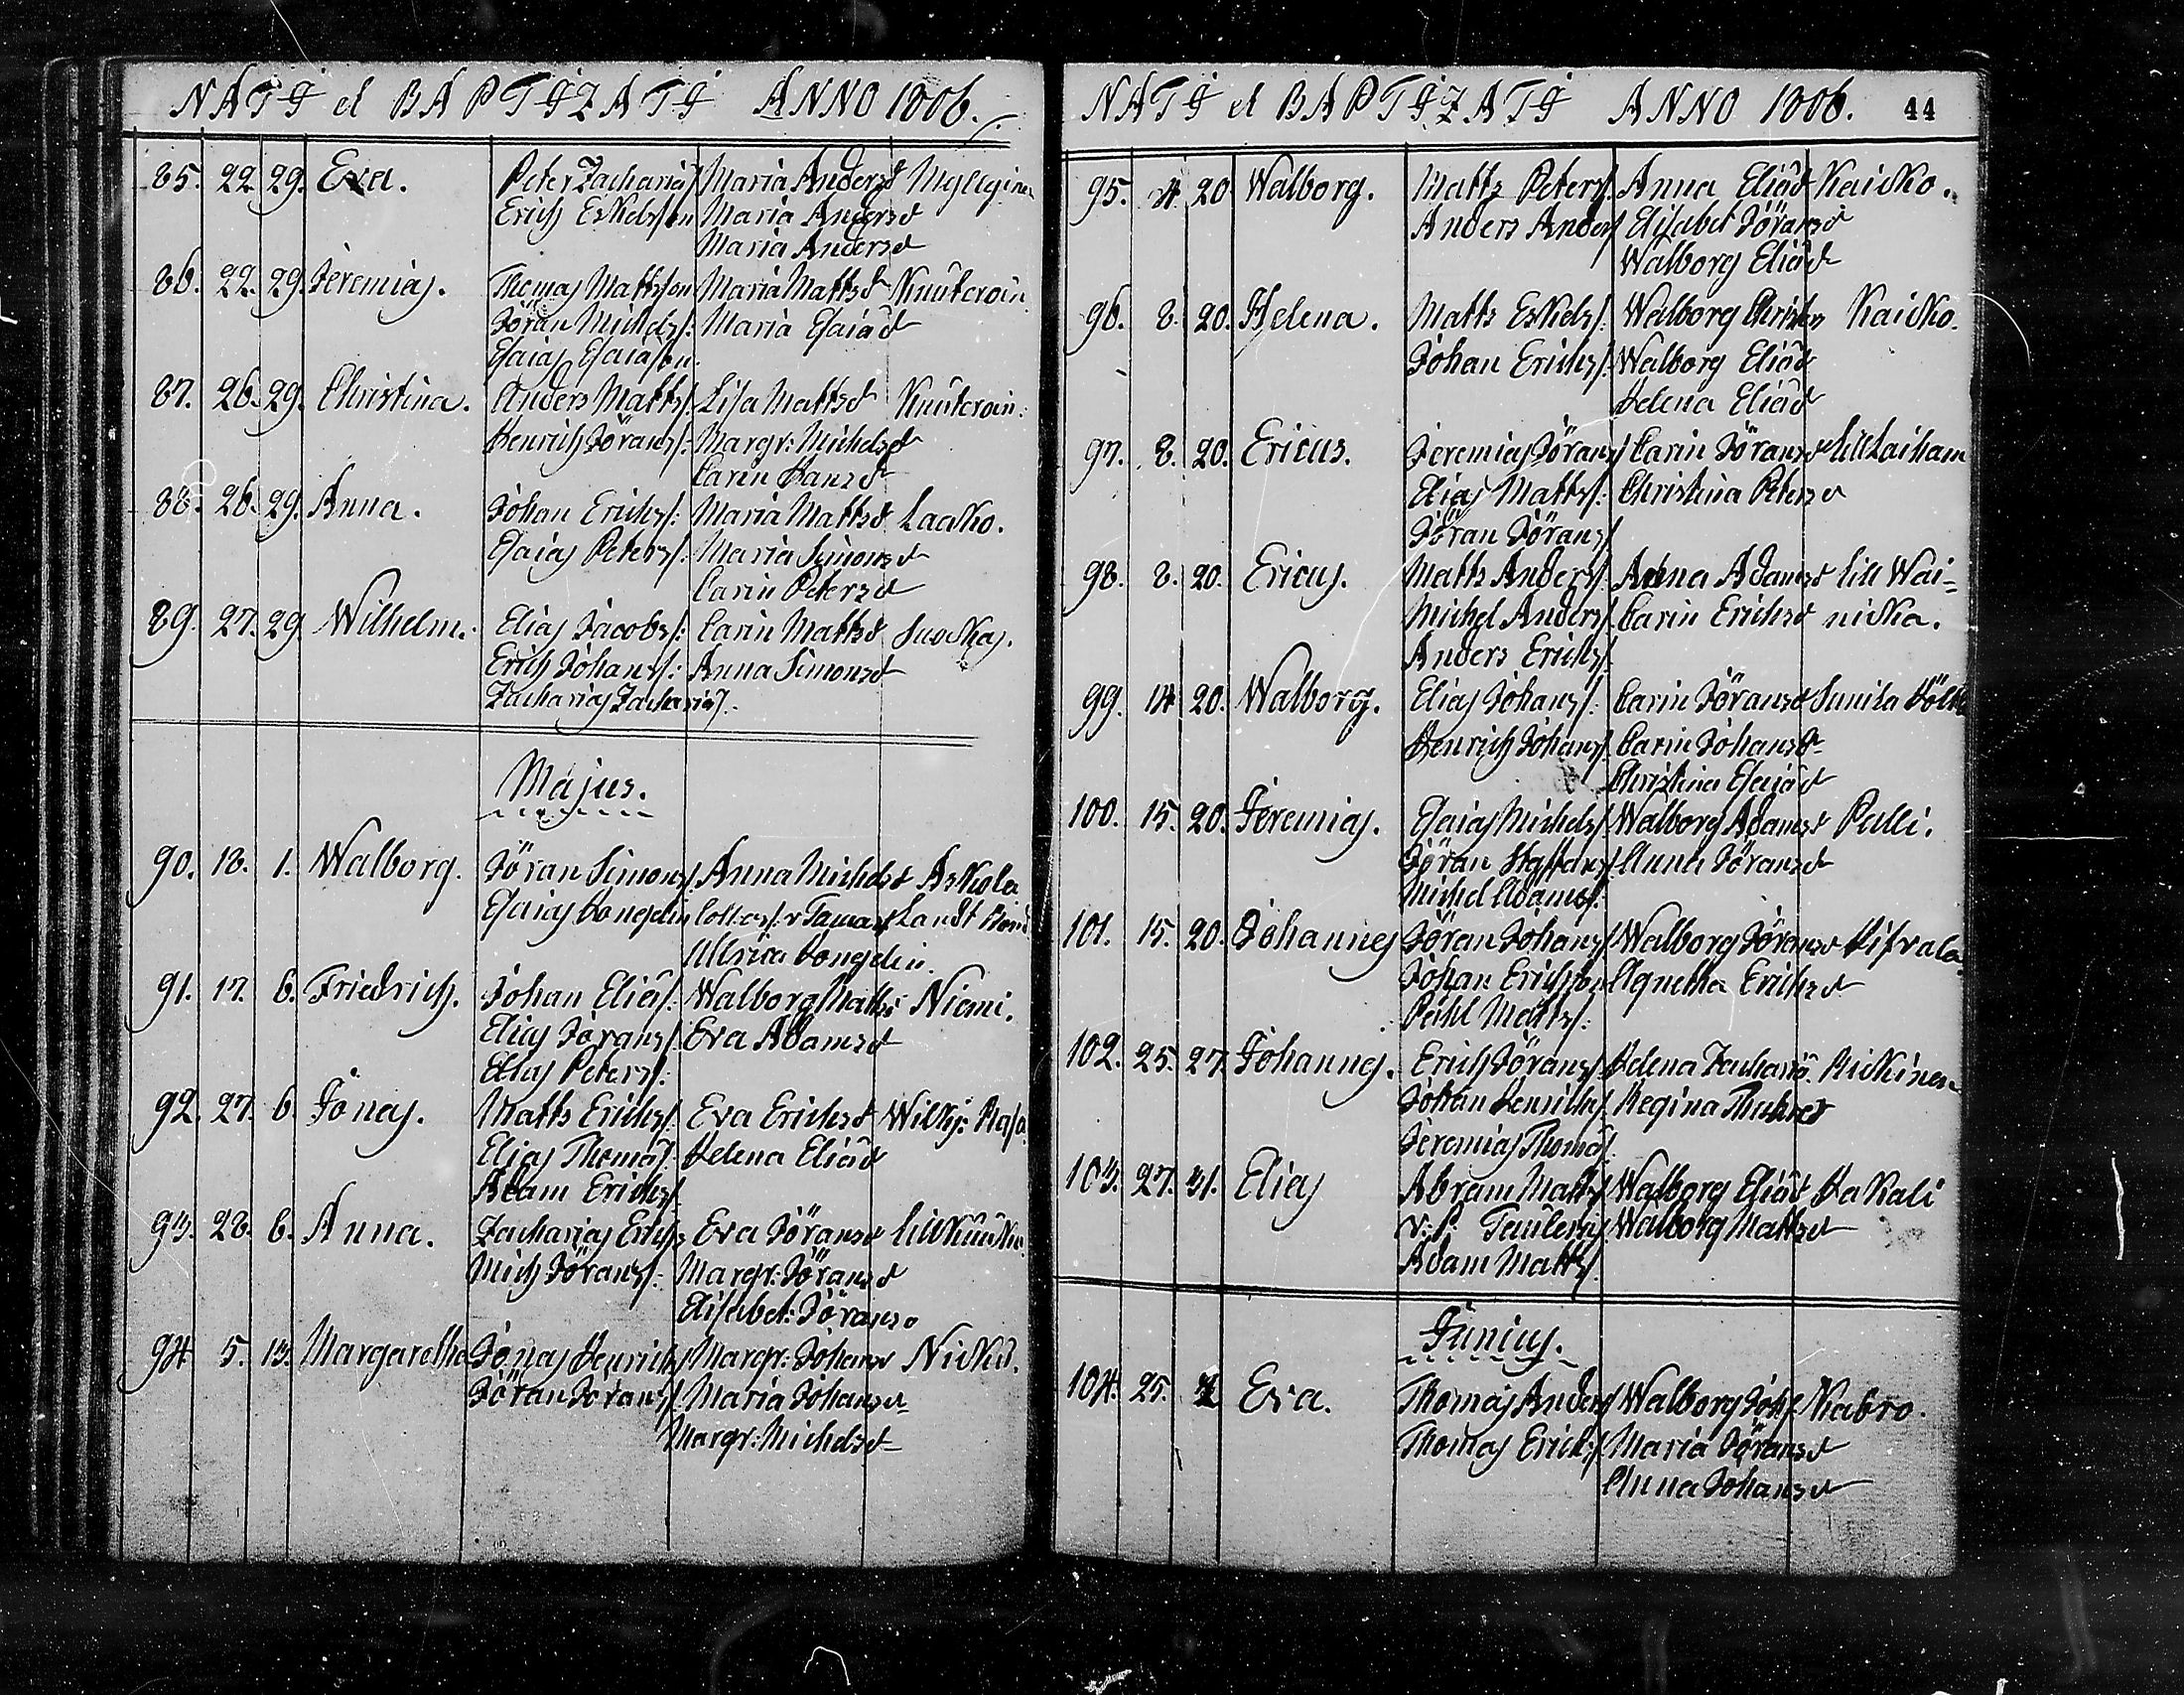 NATI et BAPTIZATI ANNO 1806.
85. 22. 29. Eva. Peter Zacharias Maria Andersd
Erich Eskelsson Maria Andersd
Maria Andersd
86. 22. 29. Jeremias. Thomas Mattsson Maria Mattsd Knuteroin
Jöran Michels: Maria Esaiæd
Esaias Esaiason.
87. 26. 29. Christina. Anders Matts: Lisa Mattsd Knuteroin.
Henrich Jörans: Margr: Michelsd
Carin Hansd
88. 26. 29. Anna. Johan Erichs: Maria Mattsd Laakko.
Esaias Peters: Maria Simonsd
Carin Petersd
89. 27. 29 Wilhelm. Elias Jacobs: Carin Mattsd
Erich Johans: Anna Simonsd
Zacharias Zacharias.
Majus.
90. 18. 1. Walborg. Jöran Simons Anna Michelsd Askola
Esaias
Ullrica
91. 17. 6. Friedrich. Johan Eliæs: Walborg Matts Niemi.
Elias Jörans: Eva Adamsd
Elias Peters:
92. 27. 6. Jonas. Matts Erichs: Eva Erichsd
Elias Thomas: Helena Eliæd
Adam Erichs:
93. 28. 6. Anna. Zacharias Erichs Eva Jöransd
Mich Jörans: Margr: Jöransd
Elisabet: Jörans
94 5. 13. Margaretha Jonas Henrichs Margr: Johansd
Jöran Jörans: Maria Johansd
Margr: Michelsd
NATI et BAPTIZATI ANNO 1806. 44
95. 4. 20 Walborg. Matts Peters: Anna Eliæd Kaicko.
Anders Anders Elisabet Jöransd
Walborg Eliæd
96. 8. 20. Helena. Matts Eskels: Walborg Christers Kaicko.
Johan Erichs: Walborg Eliæd
Helena Eliæd
97. 8. 20. Ericus. Jeremias Jörans Carin Jöransd
Elias Matts: Christina Petersd
Jöran Jörans
98. 8. 20. Ericus. Matts Anders: Anna Adamsd Lill Wai-
Michel Anders Carin Erichsd nicka.
Anders Erichs
99. 14 20. Walborg. Elias Johans: Carin Jöransd
Henrich Johans Carin Johansd
Christina Esaiæd
100. 15. 20. Jeremias. Esaias Michels Walborg Adamsd Pelli.
Jöran Staffans Anna Jöransd
Michel Adams:
101. 15. 20. Johannes Jöran Johans Walborg Jöransd
Johan Erichson Agnetha Erichsd
Påhl Matts:
102. 25. 27. Johannes. Erich Jörans Helena Zachariæ. Rickinen
Johan Henrichs Regina
Jeremias Thomas:
103. 27. 31. Elias Abram Matts Walborg Eliæd Hakali
Walborg Mattsd
Adam Matts
Junius.
104. 25. 1 Eva. Thomas Anders Walborg Joh: Kabro.
Thomas Erichs Maria Jöransd
Anna Johansd